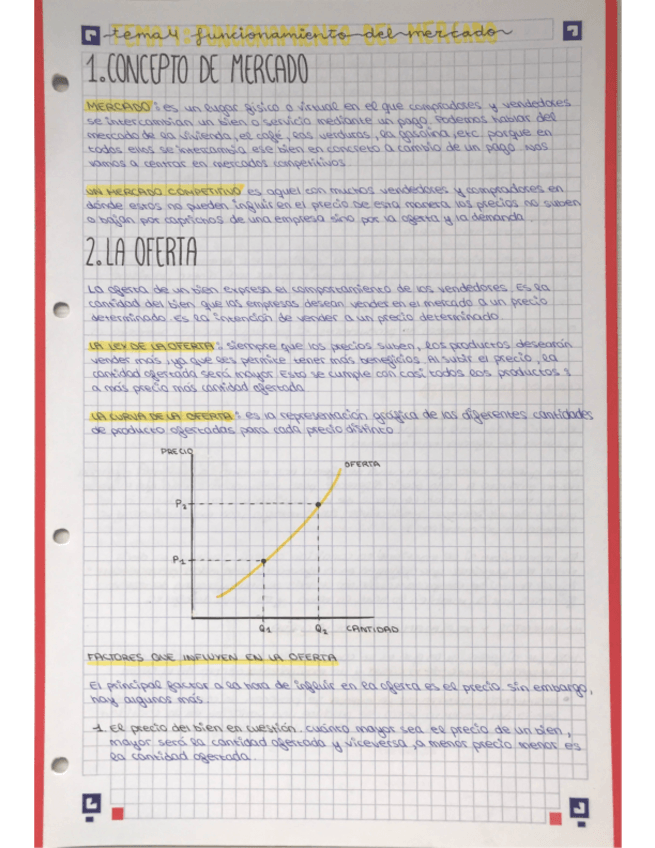 tema 4: funcionamiento del mercado
1. CONCEPTO DE MERCADO
MERCADO: es un lugar físico o virtual en el que compradores y vendedores
se intercambian un bien o servicio mediante un pago. Podemos hablar del
mercado de la vivienda, el café, las verduras, la gasolina, etc. porque en
todos ellos se intercambia ese bien en concreto a cambio de un pago. Nos
vamos a centrar en mercados competitivos.
UN MERCADO COMPETITIVO es aquel con muchos vendedores y compradores en
dónde estos no pueden influir en el precio De esta manera los precios no suben
o bajan por caprichos de una empresa sino por la oferta y la demanda.
2. LA OFERTA
La oferta de un bien expresa el comportamiento de los vendedores. Es la
cantidad del bien que las empresas desean vender en el mercado a un precio
determinado. Es la intención de vender a un precio determinado.
LA LEY DE LA OFERTA: siempre que los precios suben, los productos desearán
vender más, ya que les permite tener más beneficios. Al subir el precio, la
cantidad ofertada será mayor. Esto se cumple con casi todos los productos:
a más precio más cantidad ofertada.
LA CURVA DE LA OFERTA: es la representación gráfica de las diferentes cantidades
de producto ofertadas para cada precio distinto
PRECIO
OFERTA
P2
P1
Q1 Q2 CANTIDAD
FACTORES QUE INFLUYEN EN LA OFERTA
El principal factor a la hora de influir en la oferta es el precio. Sin embargo,
hay algunos más.
1. El precio del bien en cuestión. cuánto mayor sea el precio de un bien,
mayor será la cantidad ofertada y viceversa, a menor precio menor es
la cantidad ofertada.